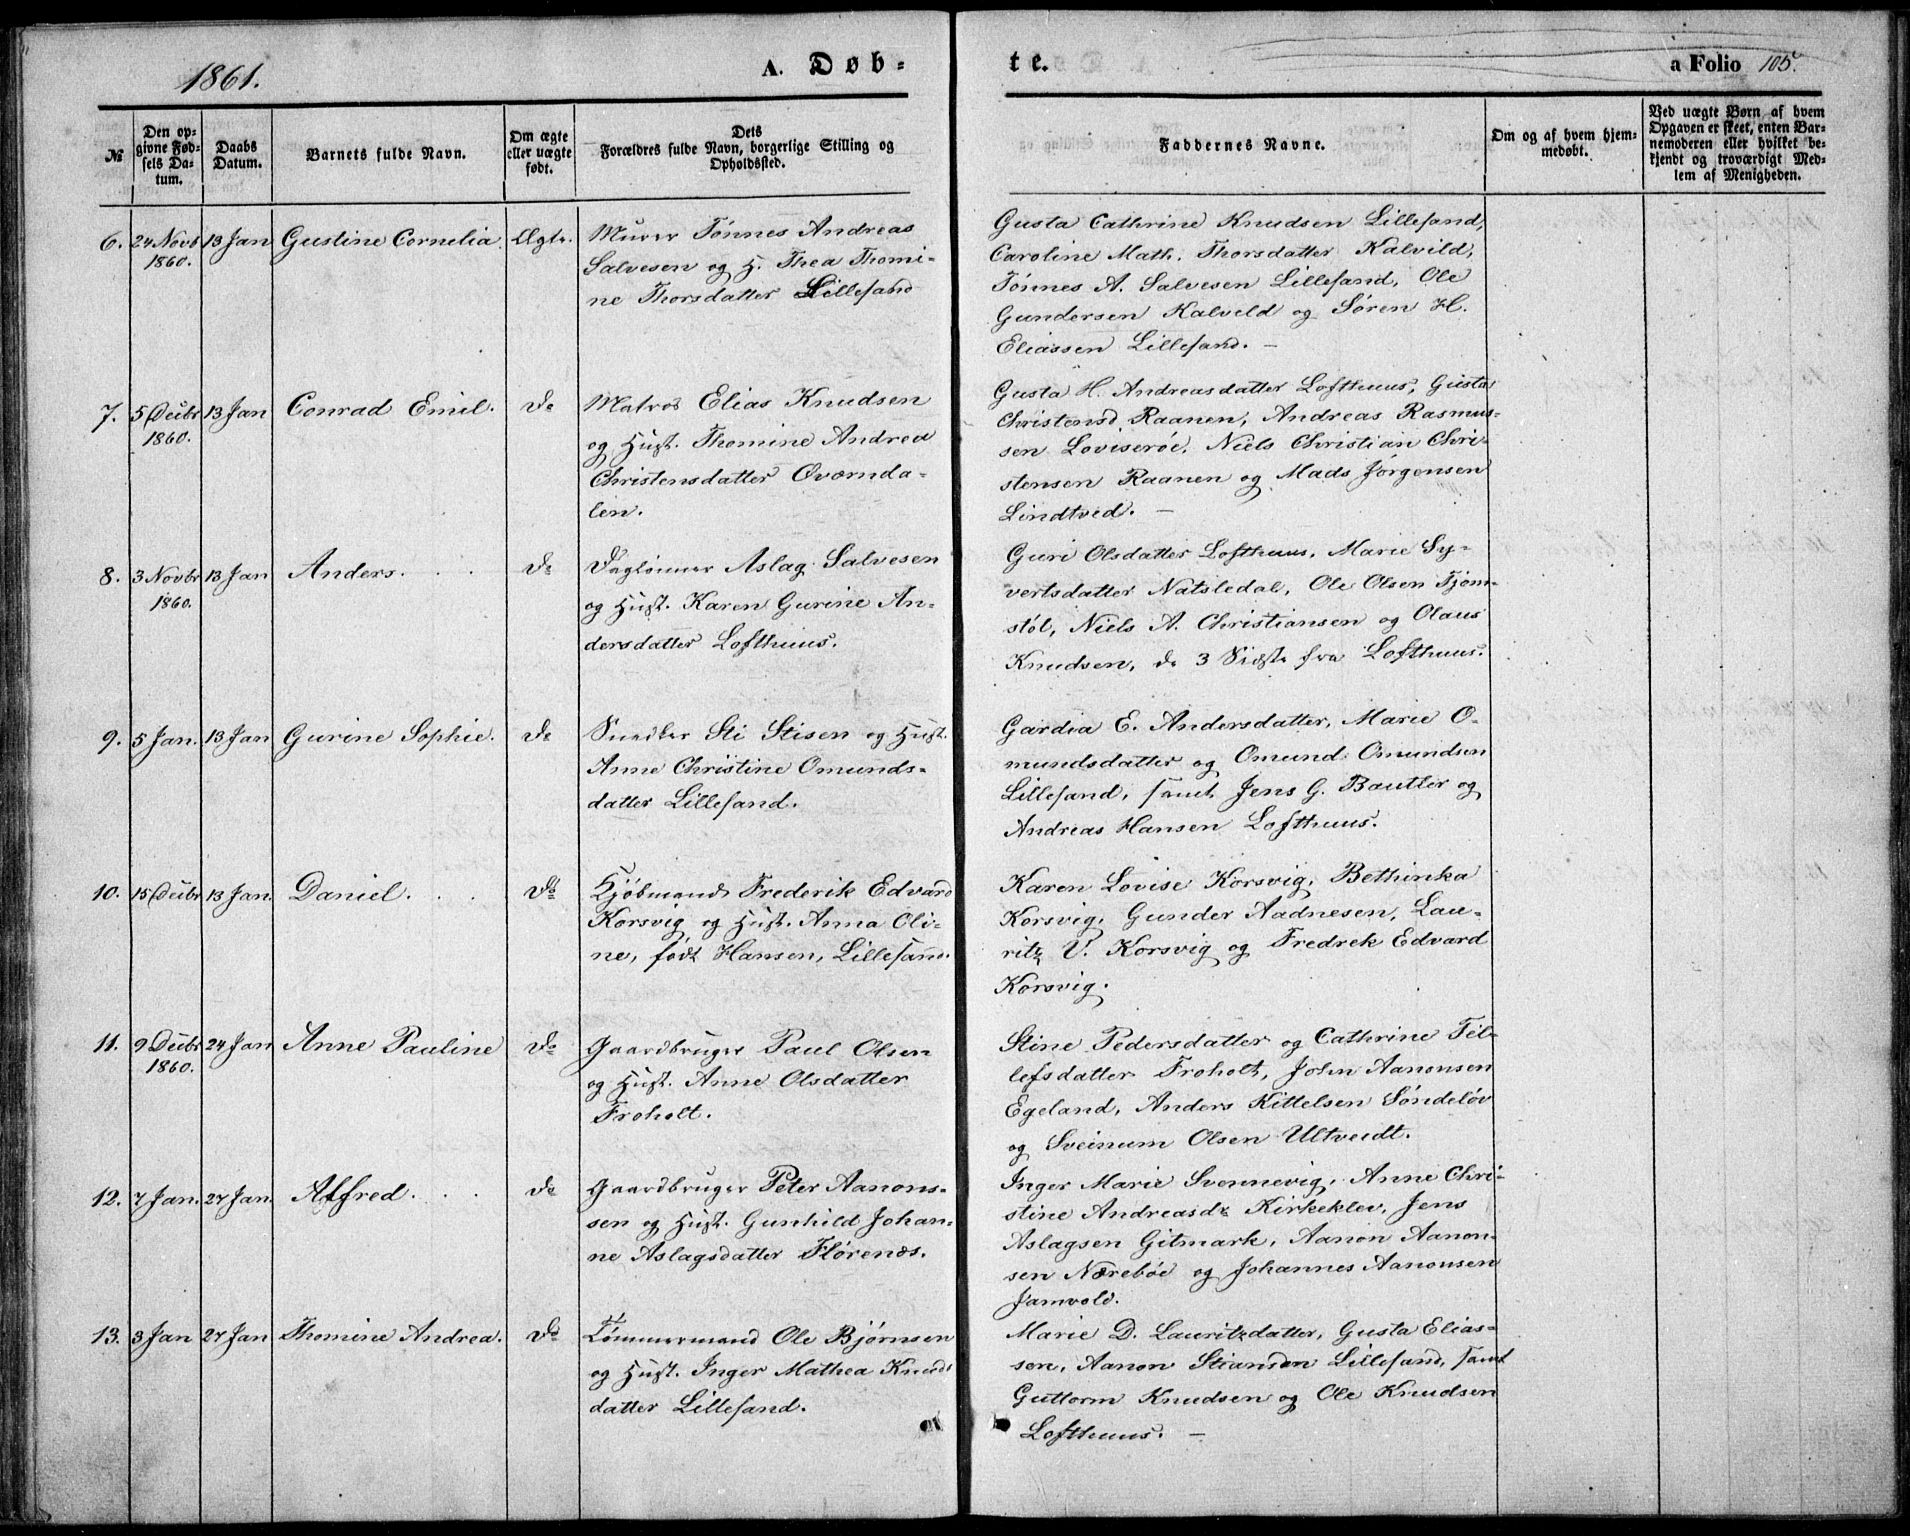 1861.
A. Døb-
te.
a Folio 105.
№
Den op-
givne Fød-
sels Da-
tum.
Daabs
Datum.
Barnets fulde Navn.
Om ægte
eller uægte
født.
Dets
Forældres fulde Navn, borgerlige Stilling og
Opholdssted.
Faddernes Navne.
Om og af hvem hjem-
medøbt.
Ved uægte Børn af hvem
Opgaven er skeet, enten Bar-
nemoderen eller hvilket be-
kjendt og troværdigt Med-
lem af Menigheden.
6. 24 Novb 1860. 13 Jan Gustine Cornelia. Ægte.
Murer Tønnes Andreas
Salvesen og H. Thea Thomi-
ne Thorsdatter Lillesand
Gusta Cathrine Knudsen Lillesand,
Caroline Math. Thorsdatter Kalvild,
Tønnes A. Salvesen Lillesand, Ole
Gundersen Kalvild og Søren H.
Eliassen Lillesand. —
7. 5 Decbr 1860. 13 Jan Conrad Emil. do
Matros Elias Knudsen
og Hust. Thomine Andrea
Christensdatter Qværnda-
len.
Gusta H. Andreasdatter Lofthuus, Gusta
Christensd. Raanen, Andreas Rasmus-
sen Loviserøe, Niels Christian Chri-
stensen Raanen og Mads Jørgensen
Lindtved. —
8. 3 Novbr 1860. 13 Jan Anders. do
Daglønner Aslag Salvesen
og Hust. Karen Gurine An-
dersdatter Lofthuus.
Guri Olsdatter Lofthuus, Marie Sy-
vertsdatter Natsledal, Ole Olsen Tjøm-
støl, Niels A. Christiansen og Olaus
Knudsen, de 3 Sidste fra Lofthuus.
9. 5 Jan. 13 Jan Gurine Sophie. do
Snedker Sti Stisen og Hust.
Anne Christine Omunds-
datter Lillesand.
Gardia E. Andersdatter, Marie O-
mundsdatter og Omund Omundsen
Lillesand, samt Jens G. Bautler og
Andreas Hansen Lofthuus.
10. 15 Decbr 13 Jan. Daniel. do
Kjøbmand Frederik Edvard
Korsvig og Hust. Anna Oli-
ne, født Hansen, Lillesand.
Karen Lovise Korsvig, Bethinka
Korsvig, Gunder Aadnesen, Lau-
ritz V. Korsvig og Fredrek Edvard
Korsvig.
11. 9 Decbr 1860. 24 Jan Anne Pauline do
Gaardbruger Paul Olsen
og Hust. Anne Olsdatter
Froholt.
Stine Pedersdatter og Cathrine Tel-
lefsdatter Froholt, John Aanonsen
Egeland, Anders Kittelsen Søndeløv
og Sveinum Olsen Ultveidt.
12. 7 Jan. 27 Jan. Alfred. do
Gaardbruger Peter Aanons-
sen og Hust. Gunhild Johan-
ne Aslagsdatter Flørenæs.
Inger Marie Svennevig, Anne Chri-
stine Andreasdr Kirkeklev, Jens
Aslagsen Gitmark, Aanon Aanon-
sen Nærebøe og Johannes Aanonsen
Jamvold.
13. 3 Jan 27 Jan Thomine Andrea. do
Tømmermand Ole Bjørnsen
og Hust. Inger Mathea Knuds
datter Lillesand.
Marie D. Lauritzdatter, Gusta Elias-
sen, Aanon Stiansen Lillesand, samt
Guttorm Knudsen og Ole Knudsen
Lofthuus. —